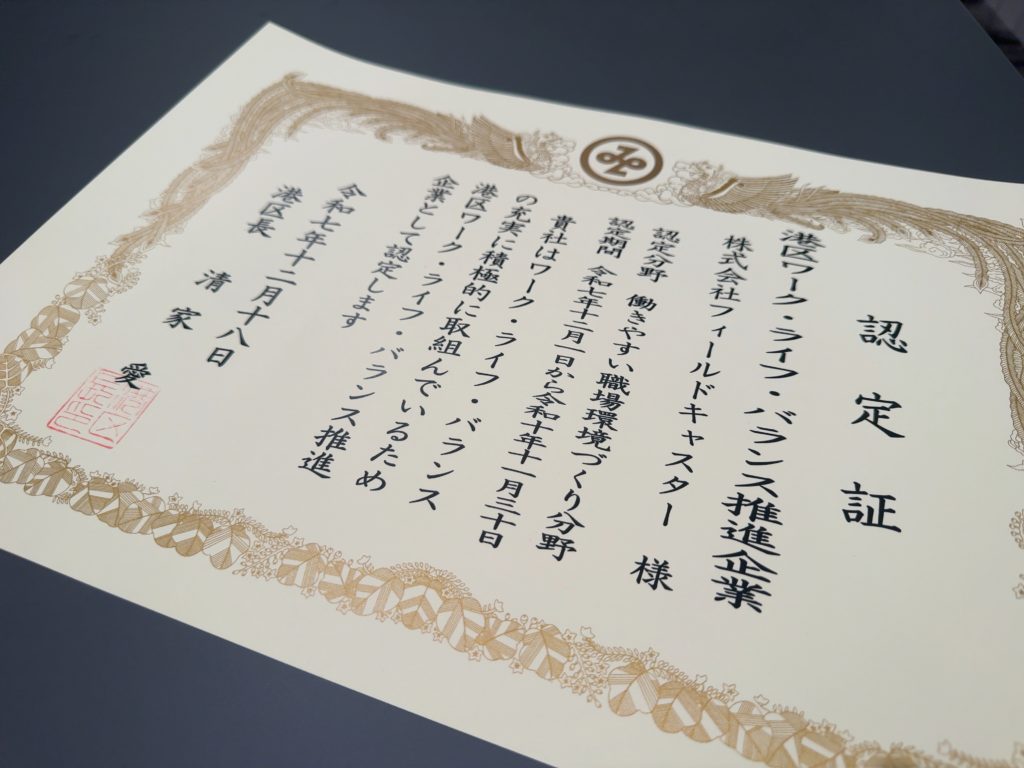 認定証
港区ワーク・ライフ・バランス推進企業
株式会社フィールドキャスター 様
認定分野 働きやすい職場環境づくり分野
認定期間 令和七年十二月一日から令和十年十一月三十日
貴社はワーク・ライフ・バランス
の充実に積極的に取組んでいるため
港区ワーク・ライフ・バランス推進
企業として認定します
令和七年十二月十八日
港区長 清家 愛